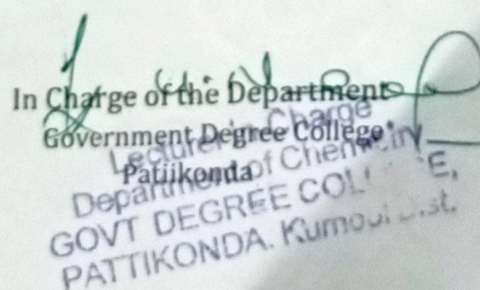 In Charge of the Department
Government Degree College
Patiikonda
Lecturer in Charge
Department of Chemistry
GOVT DEGREE COL E,
PATTIKONDA. Kurnool Dist.